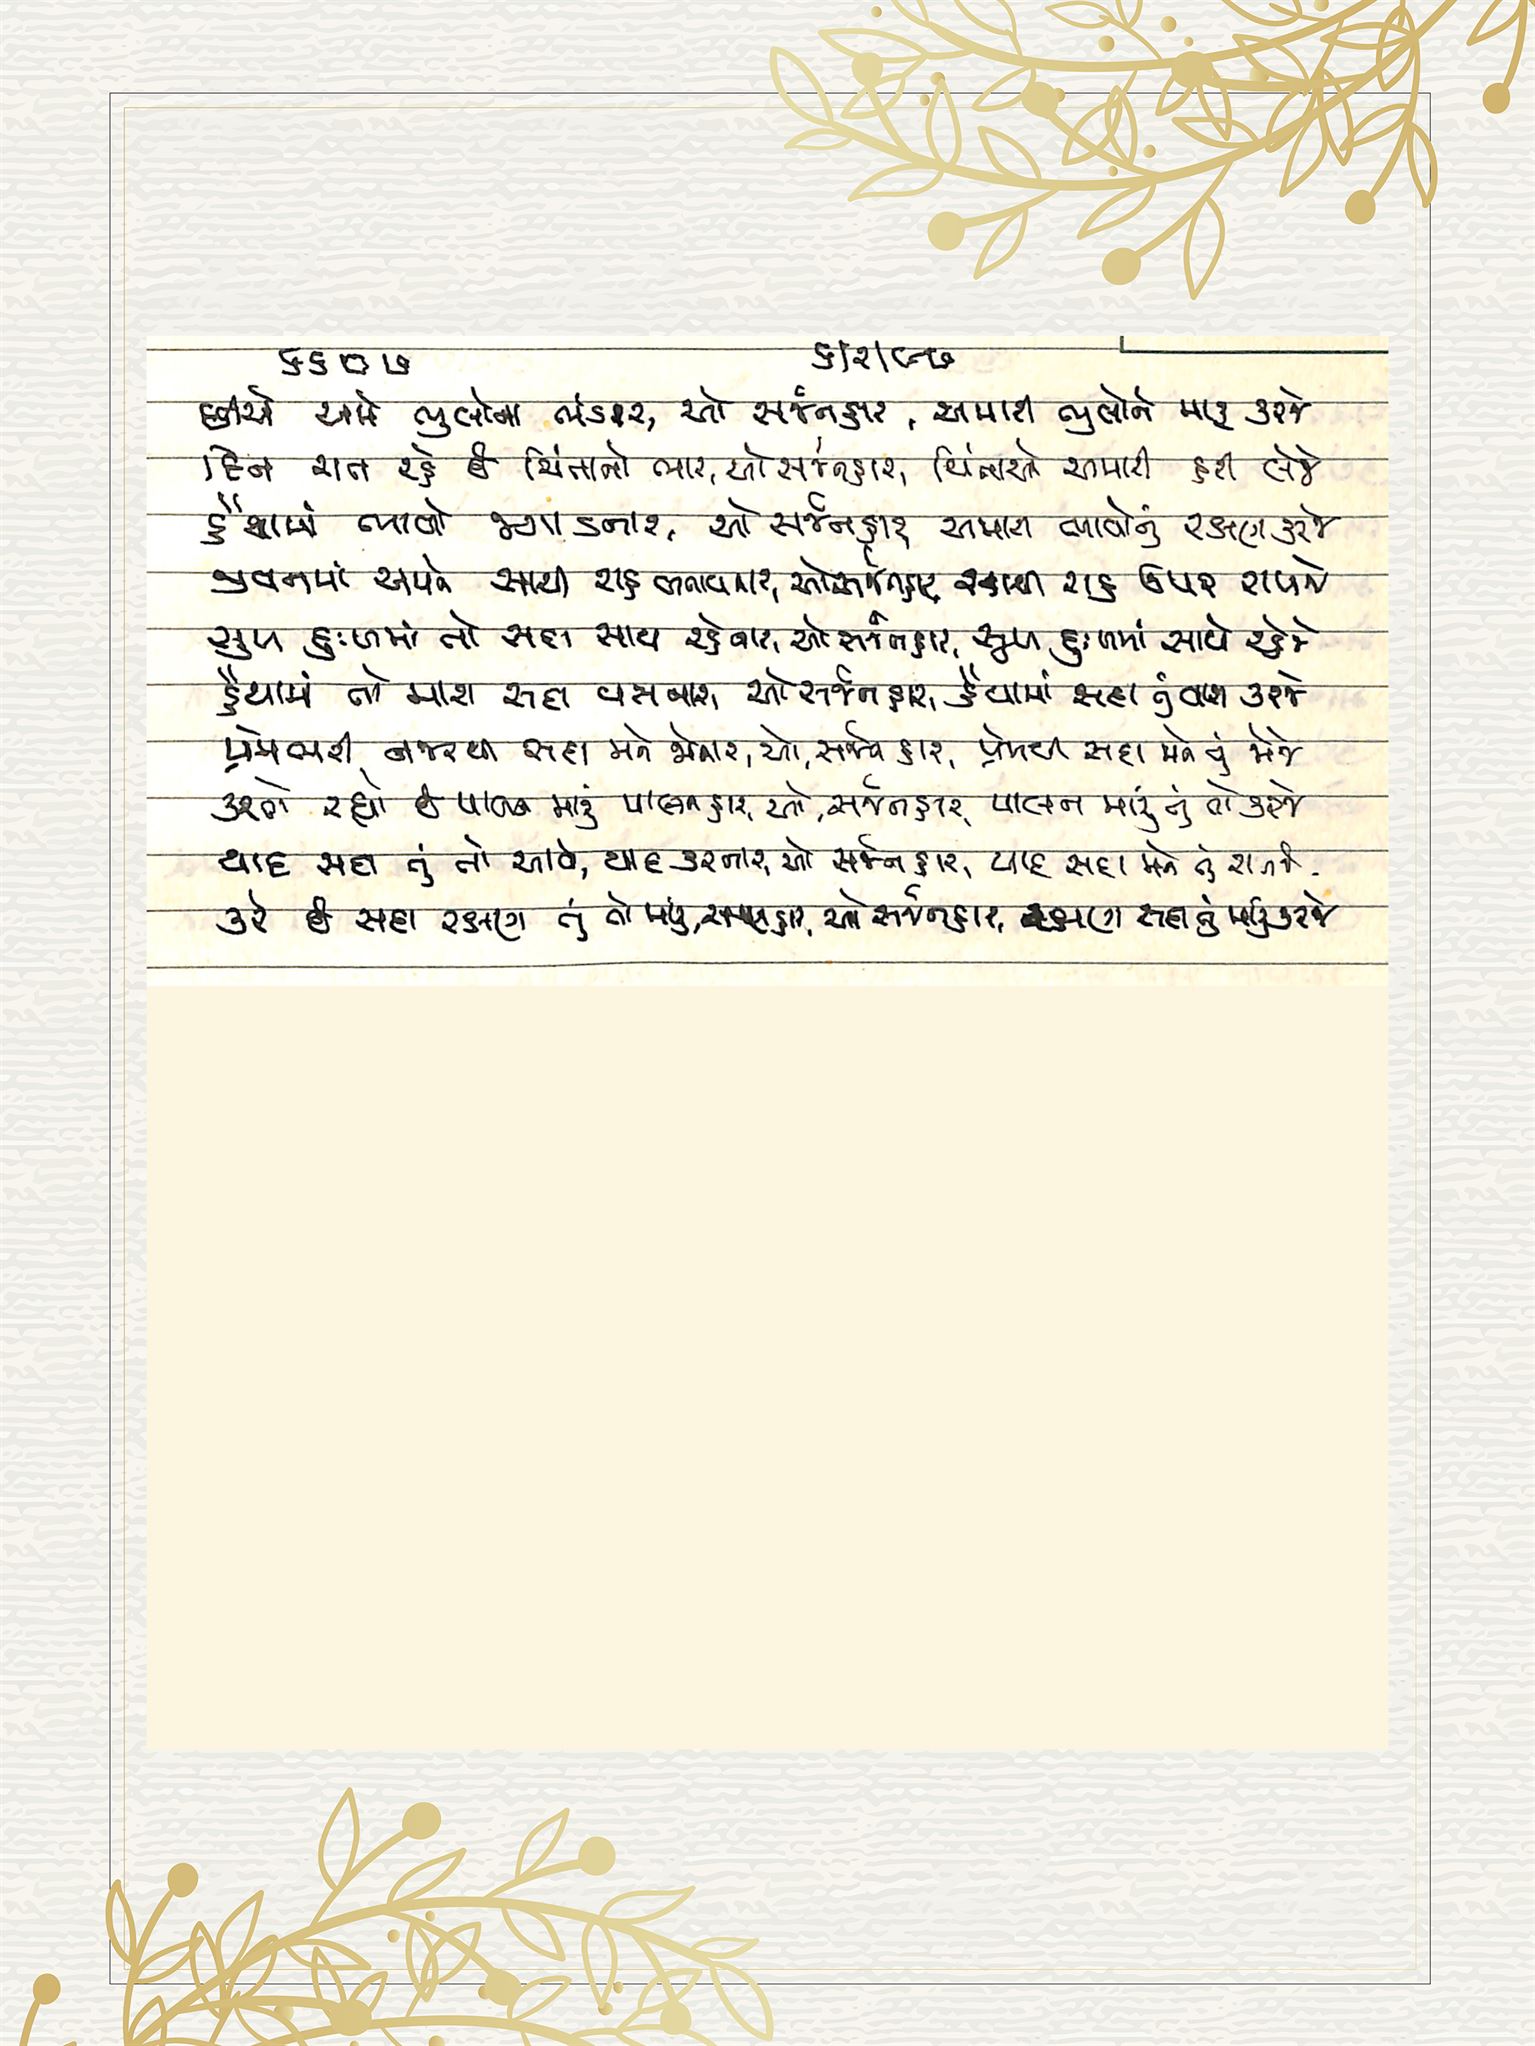 ૬૬૦૭ ૬/૨/૯૭
છીએ અમે ભુલોના ભંડાર, ઓ સર્જનહાર, અમારી ભુલોને માફ કરજે
દિન રાત રહે છે ચિંતાનો ભાર, ઓ સર્જનહાર, ચિંતાઓ અમારી હરી લેજે
હૈયામાં ભાવો જગાડનાર, ઓ સર્જનહાર અમારા ભાવોનું રક્ષણ કરજે
જીવનમાં અમને સાચી રાહ બતાવનાર, ઓ સર્જનહાર, સાચી રાહ ઉપર રાખજે
સુખ દુઃખમાં તો સદા સાથ રહેનાર, ઓ સર્જનહાર, સુખ દુઃખમાં સાથે રહેજે
હૈયામાં તો મારા સદા વસનાર, ઓ સર્જનહાર, હૈયામાં સદા તું વાસ કરજે
પ્રેમભરી નજરથી સદા મને જોનાર, ઓ, સર્જનહાર, પ્રેમથી સદા મને તું જોજે
કરતો રહ્યો છે પાલન મારું પાલનહાર, ઓ, સર્જનહાર, પાલન મારું તું તો કરજે
યાદ સદા તું તો આવે, યાદ કરનાર, ઓ સર્જનહાર, યાદ સદા મને તું રાખજે.
કરે છે સદા રક્ષણ તું તો મારું, ઓ સર્જનહાર, રક્ષણ સદા તું મારું કરજે